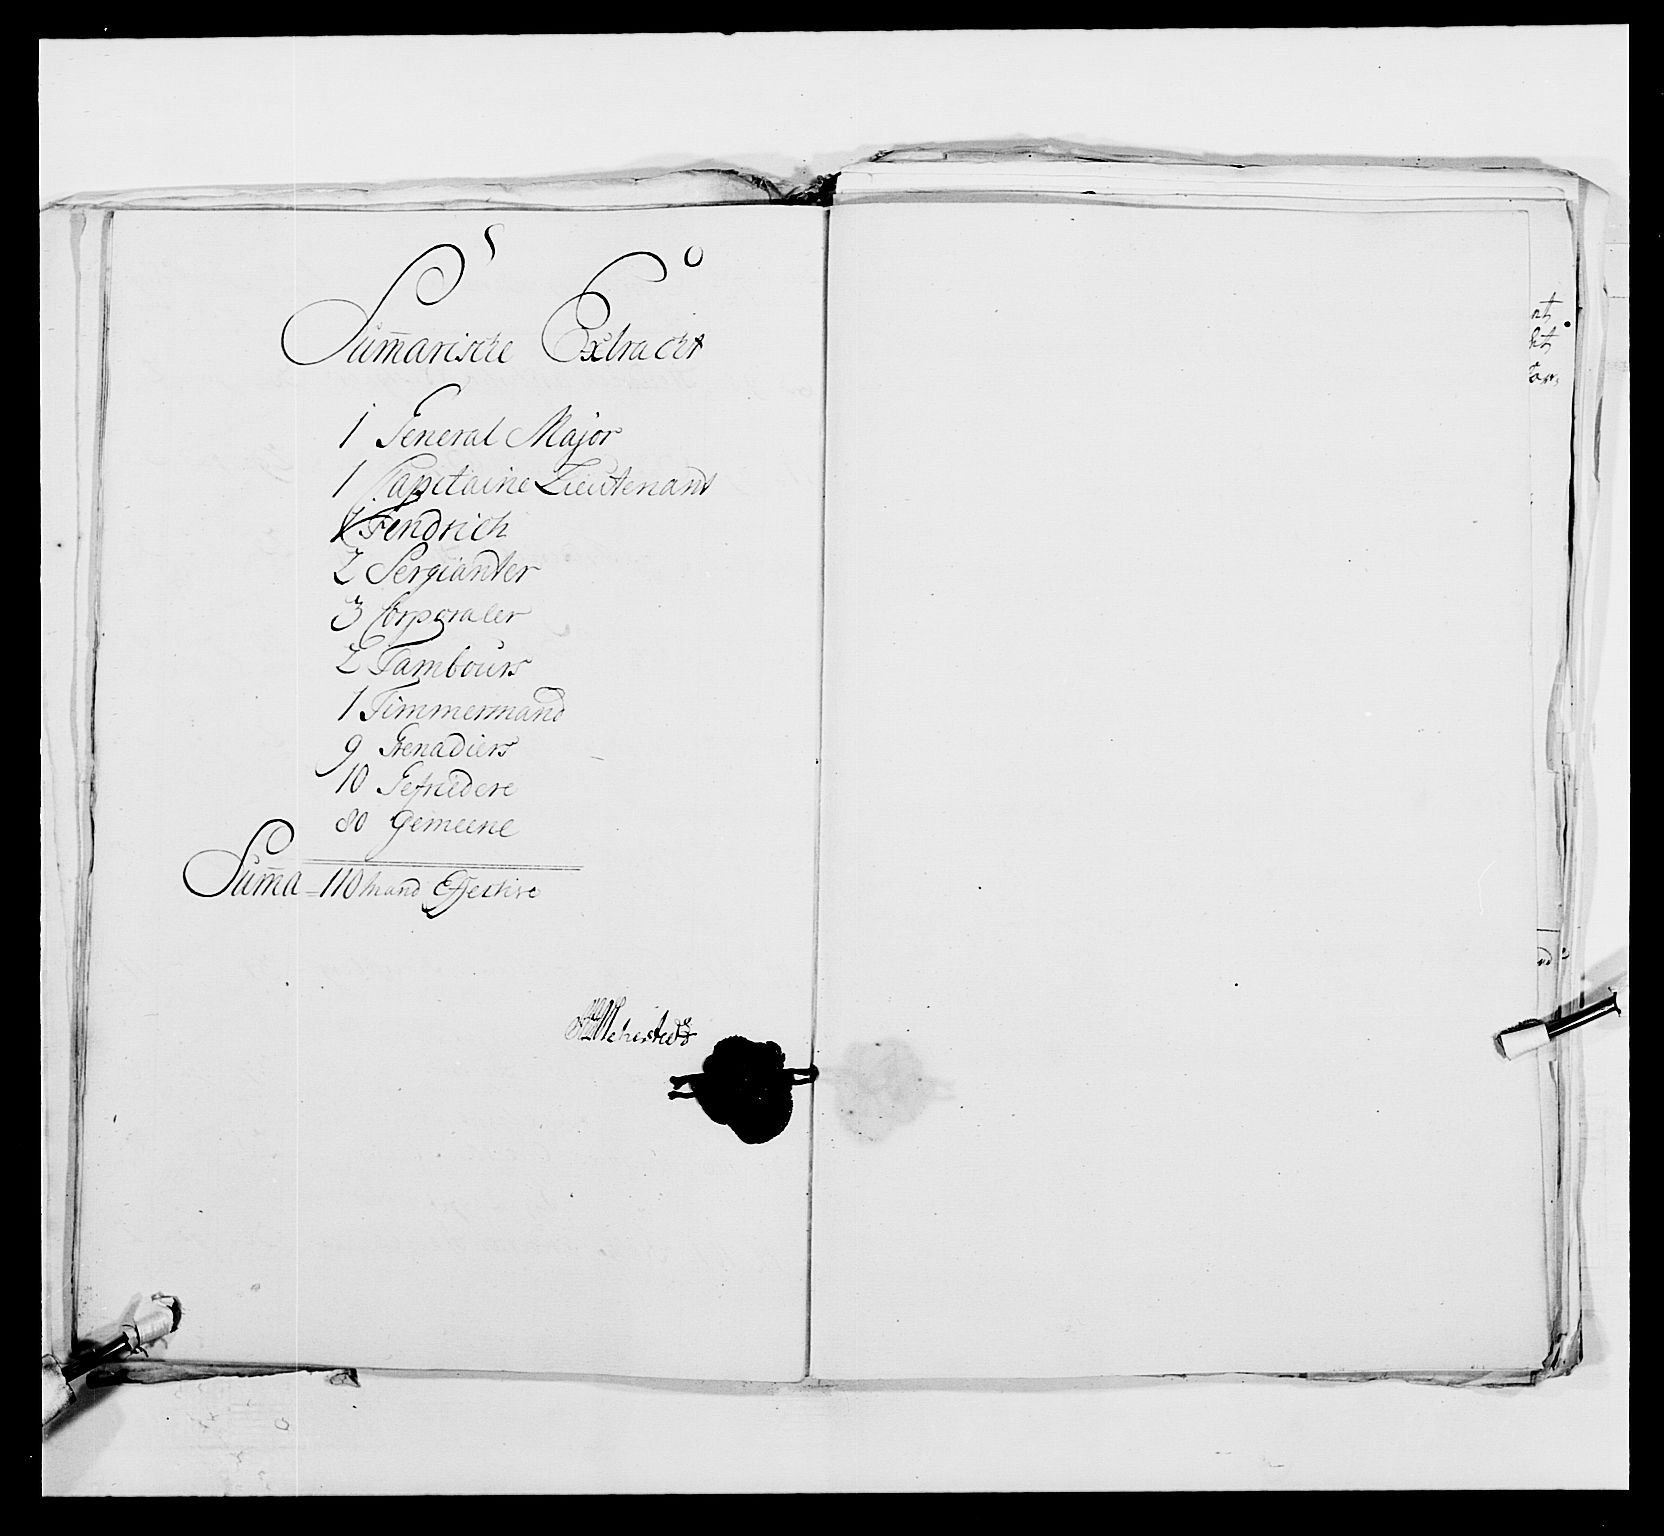 Sum̅arische Extracht
1 General Major
1 Capitaine Lieutenant
1 Fendrich
2 Sergianter
3 Corporaler
2 Tambours
1 Timmermand
9 Grenadiers
10 Gefreidere
80 Gemeene
Sum̅a = 110 Mand Effective